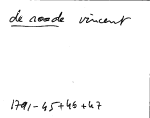 de roode vincent
1791-45+46+47